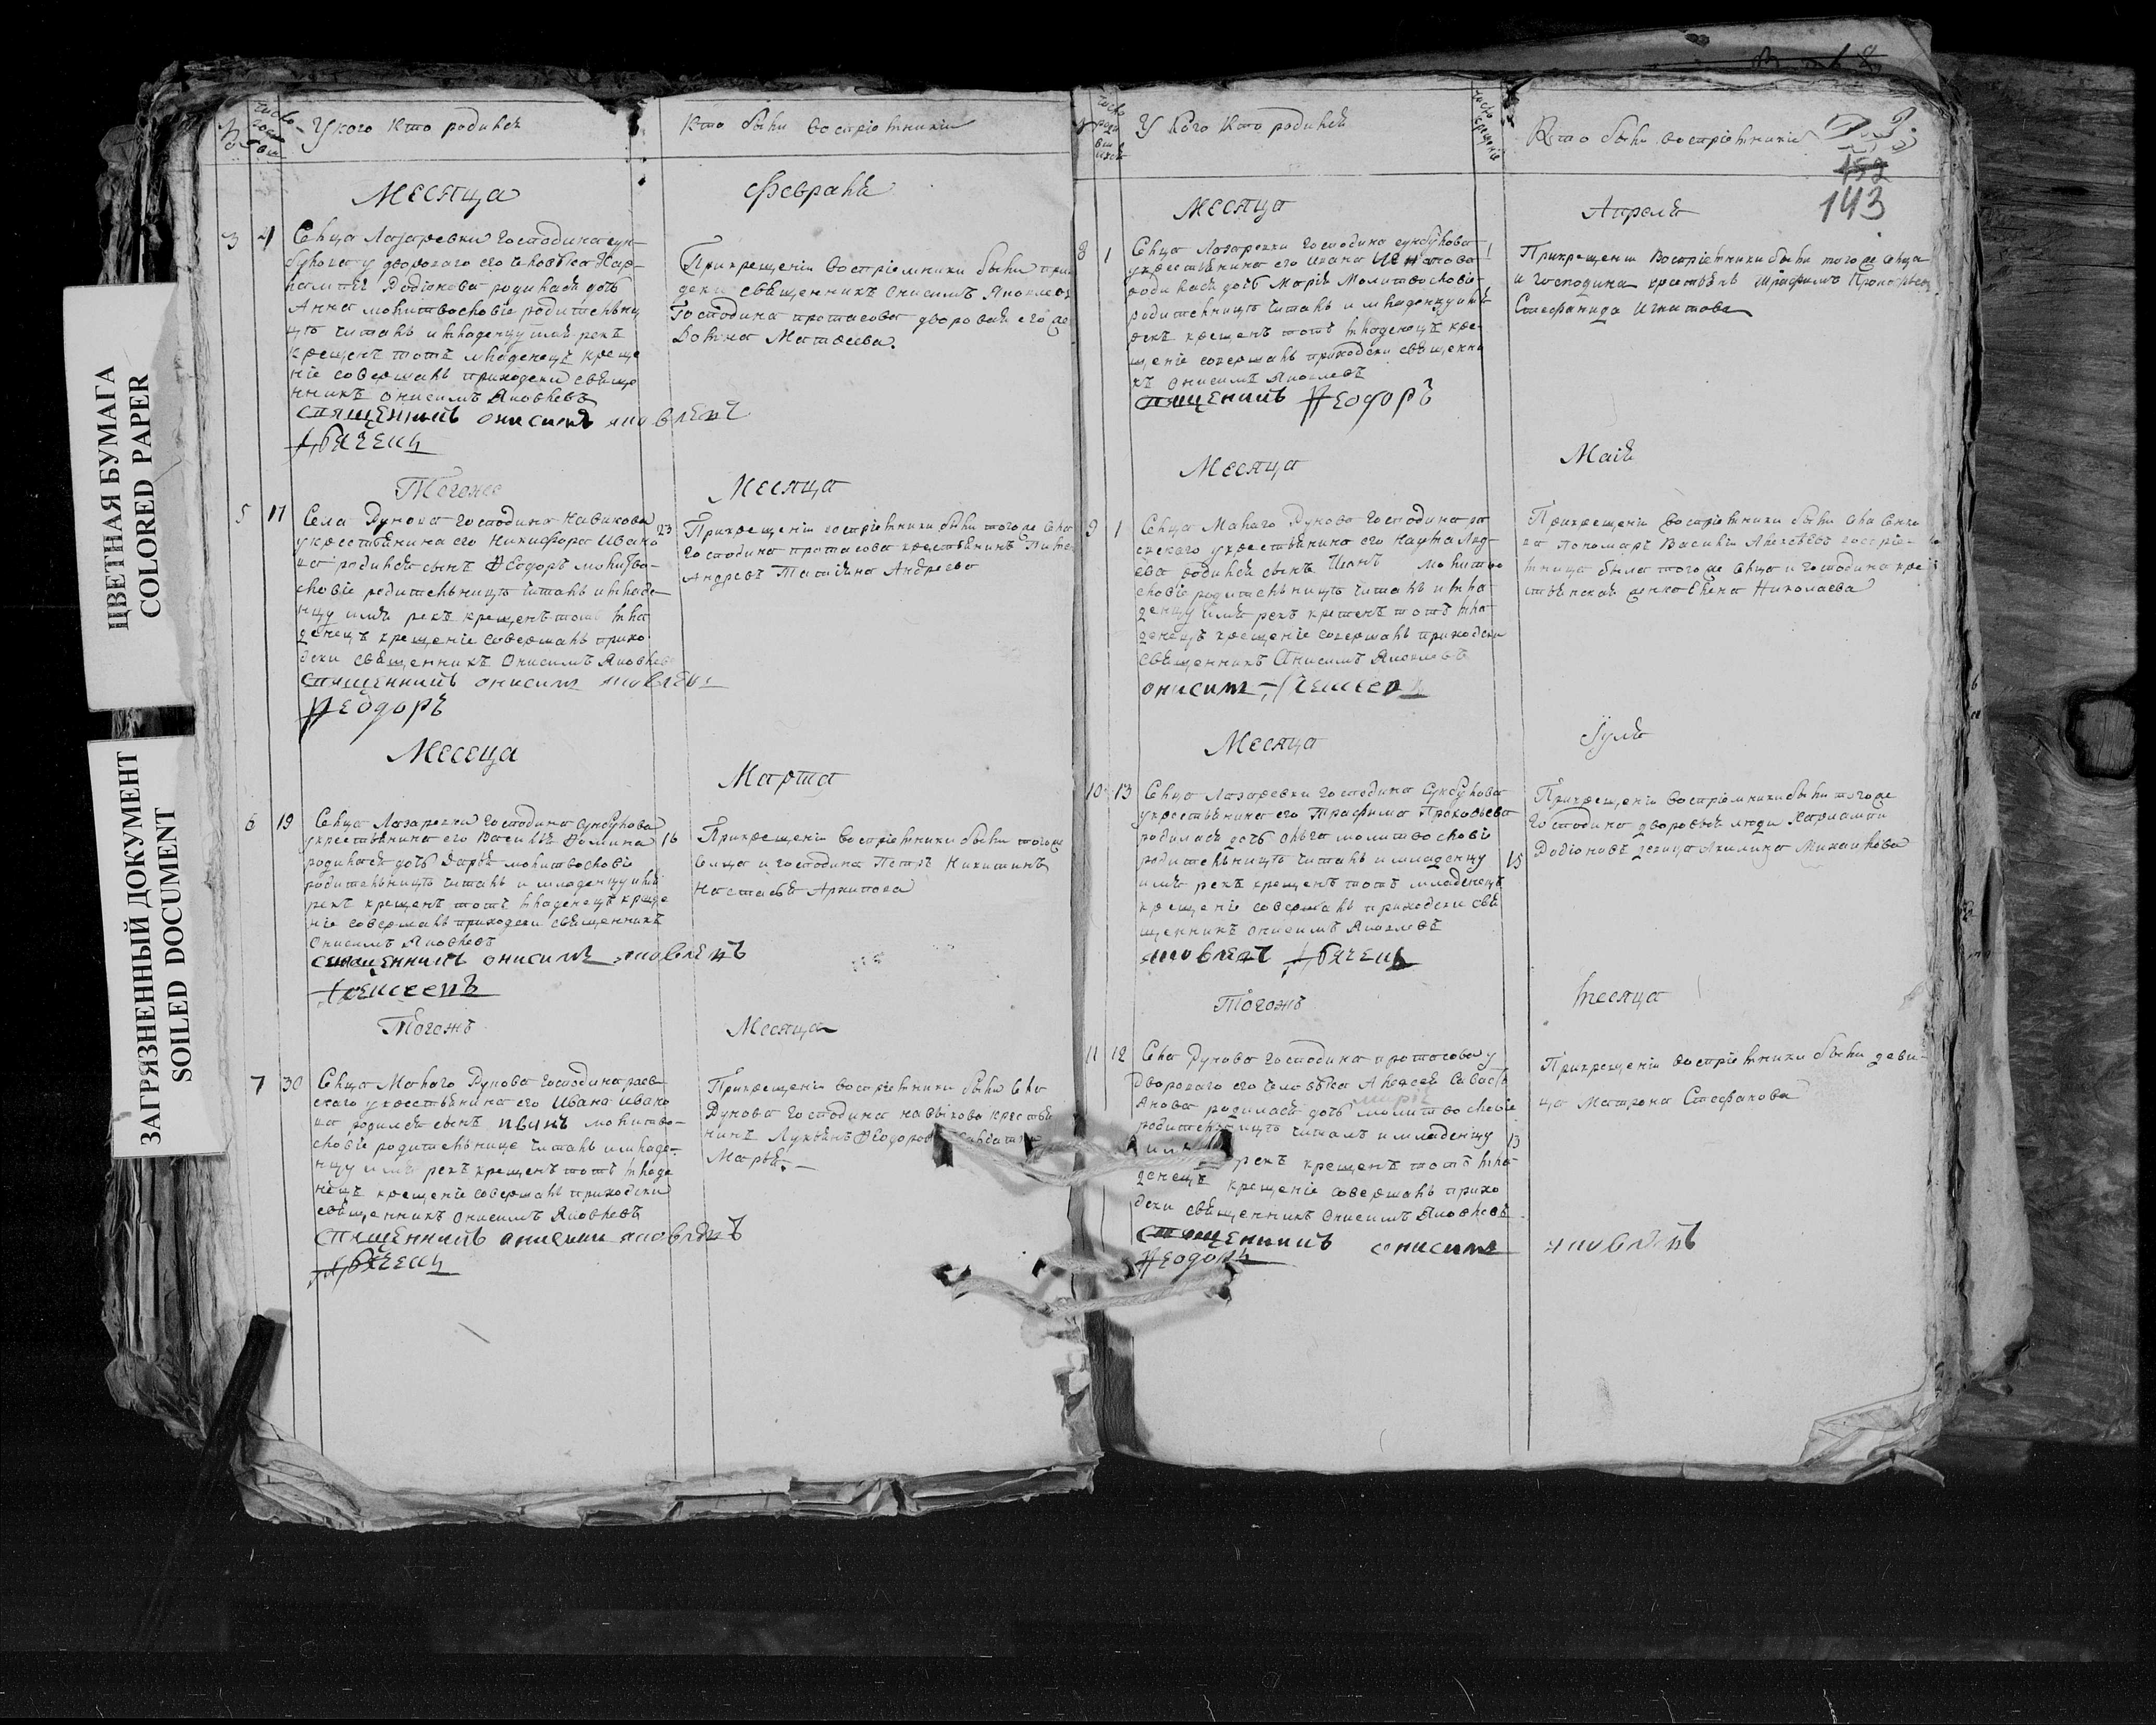 ЦВЕТНАЯ БУМАГА
COLORED PAPER
ЗАГРЯЗНЕННЫЙ ДОКУМЕНТ
SOILED DOCUMENT
У кого Кто родился
Кто были восприемники
Месяца
Февраля
3 4 Сельца Лазаревки Господина сун-
булова у дворового его человека Хар-
лампия Родионова родилася дочь
Анна молитвословие родительни
цу читалъ и младенцу имя рекъ
крещенъ тотъ младенецъ креще
ние совершалъ приходски свяще
нникъ Онисимъ Яковлевъ
священникъ онисимъ яковлевъ
При крещении восприемники были при
дски священникъ Онисимъ Яковлевъ
Господина протасова дворовая его
Матвеева.
Тогоже
Месяца
5 17 Села Дунова Господина Навикова
у крестьянина его Никифора Ивано
ва родился сынъ Феодоръ молитво-
словие родительницъ читалъ и младе-
нцу имя рекъ крещенъ тотъ мла
денецъ крещение совершалъ прихо
дски священникъ Онисимъ Яковлев
священникъ онисим яковлевъ
Феодоръ
23
При крещении восприемники были тогоже села
Господина протасова крестьянинъ
Андревъ Татияна Андреева
Месеца
Марта
6 19 Сельца Лазаревки Господина Сунбулова
у крестьянина его Василья Фомина
родилася дочь Дарья молитвословие
родительницъ читалъ и младенцу имя
рекъ крещенъ тотъ младенецъ креще
ние совершалъ приходски священникъ
Онисимъ Яковлевъ
священникъ онисимъ яковлевъ
Алексеевъ
16
При крещении восприемники были тогоже
Сельца и господина Петръ Никитинъ
Настасья Архипова
Тогожъ
Месяца
7 30 Сельца Малаго Дунова Господина раев-
скаго у крестьянина его Ивана Ивано
ва родился сынъ Иванъ молитво-
словие родительнице читалъ и младе-
нцу имя рекъ крещенъ тотъ младе
нецъ крещение совершалъ приходски
священникъ Онисимъ Яковлевъ
священникъ онисим яковлевъ
При крещении восприемники были Села
Дунова Господина навикова крестья
нинъ Лукьянъ Феодоров
Марья
У Кого Кто родился
число крещения
Кто были восприемники
152
143
Месяца
Апреля
8 1 Сельца Лазаревки Господина сунбулова
у крестьянина его Ивана Игнатова
родилася дочь Мария Молитвословие
родительницъ читалъ и младенцу имя
рекъ крещенъ тотъ младенецъ кре-
щение совершалъ приходски священни
къ Онисимъ Яковлевъ
священникъ Феодоръ
1
При крещении Восприемники были тогоже Сельца
и Господина крестьянъ Трафимъ Прокофьевъ
Стефанида Игнатова
Месяца
Майя
9 1 Сельца Малаго Дунова Господина ра
евскаго у крестьянина его
родился сынъ Иванъ молитво
словие родительницъ читалъ и мла
денцу имя рекъ крещенъ тотъ мла
денецъ крещение совершалъ приходски
священникъ Онисимъ Яковлевъ
онисим Алексеевъ
При крещении восприемники были Села
пономаръ Василий Алексеевъ восприе-
мница была тогоже сельца и Господина кре
Николаева
Месяца
Iуля
10 13 Сельца Лазаревки Господина Сунбулова
у крестьянина его Трафима Прокофьева
родилася дочь Ольга молитвословие
родительницъ читалъ и младенцу
имя рекъ крещенъ тотъ младенецъ
крещение совершалъ приходски свя
щенникъ Онисимъ Яковлевъ
яковлевъ
15
При крещении восприемники были тогоже
Господина дворовые люди Харлампи
Родионовъ девица Акилина Михайлова
Тогожъ
месяца
11 12 Села Дунова Господина протасова у
дворового его человека Алексея Савасть
янова родилася дочь молитвословие
родительницъ читалъ и младенцу
имя рекъ крещенъ тотъ мла
денецъ крещение совершалъ прихо
дски священникъ Онисимъ Яковлевъ
священникъ онисим яковлевъ
Феодоръ
13
При крещении восприемники были деви-
ца Матрона Стефанова